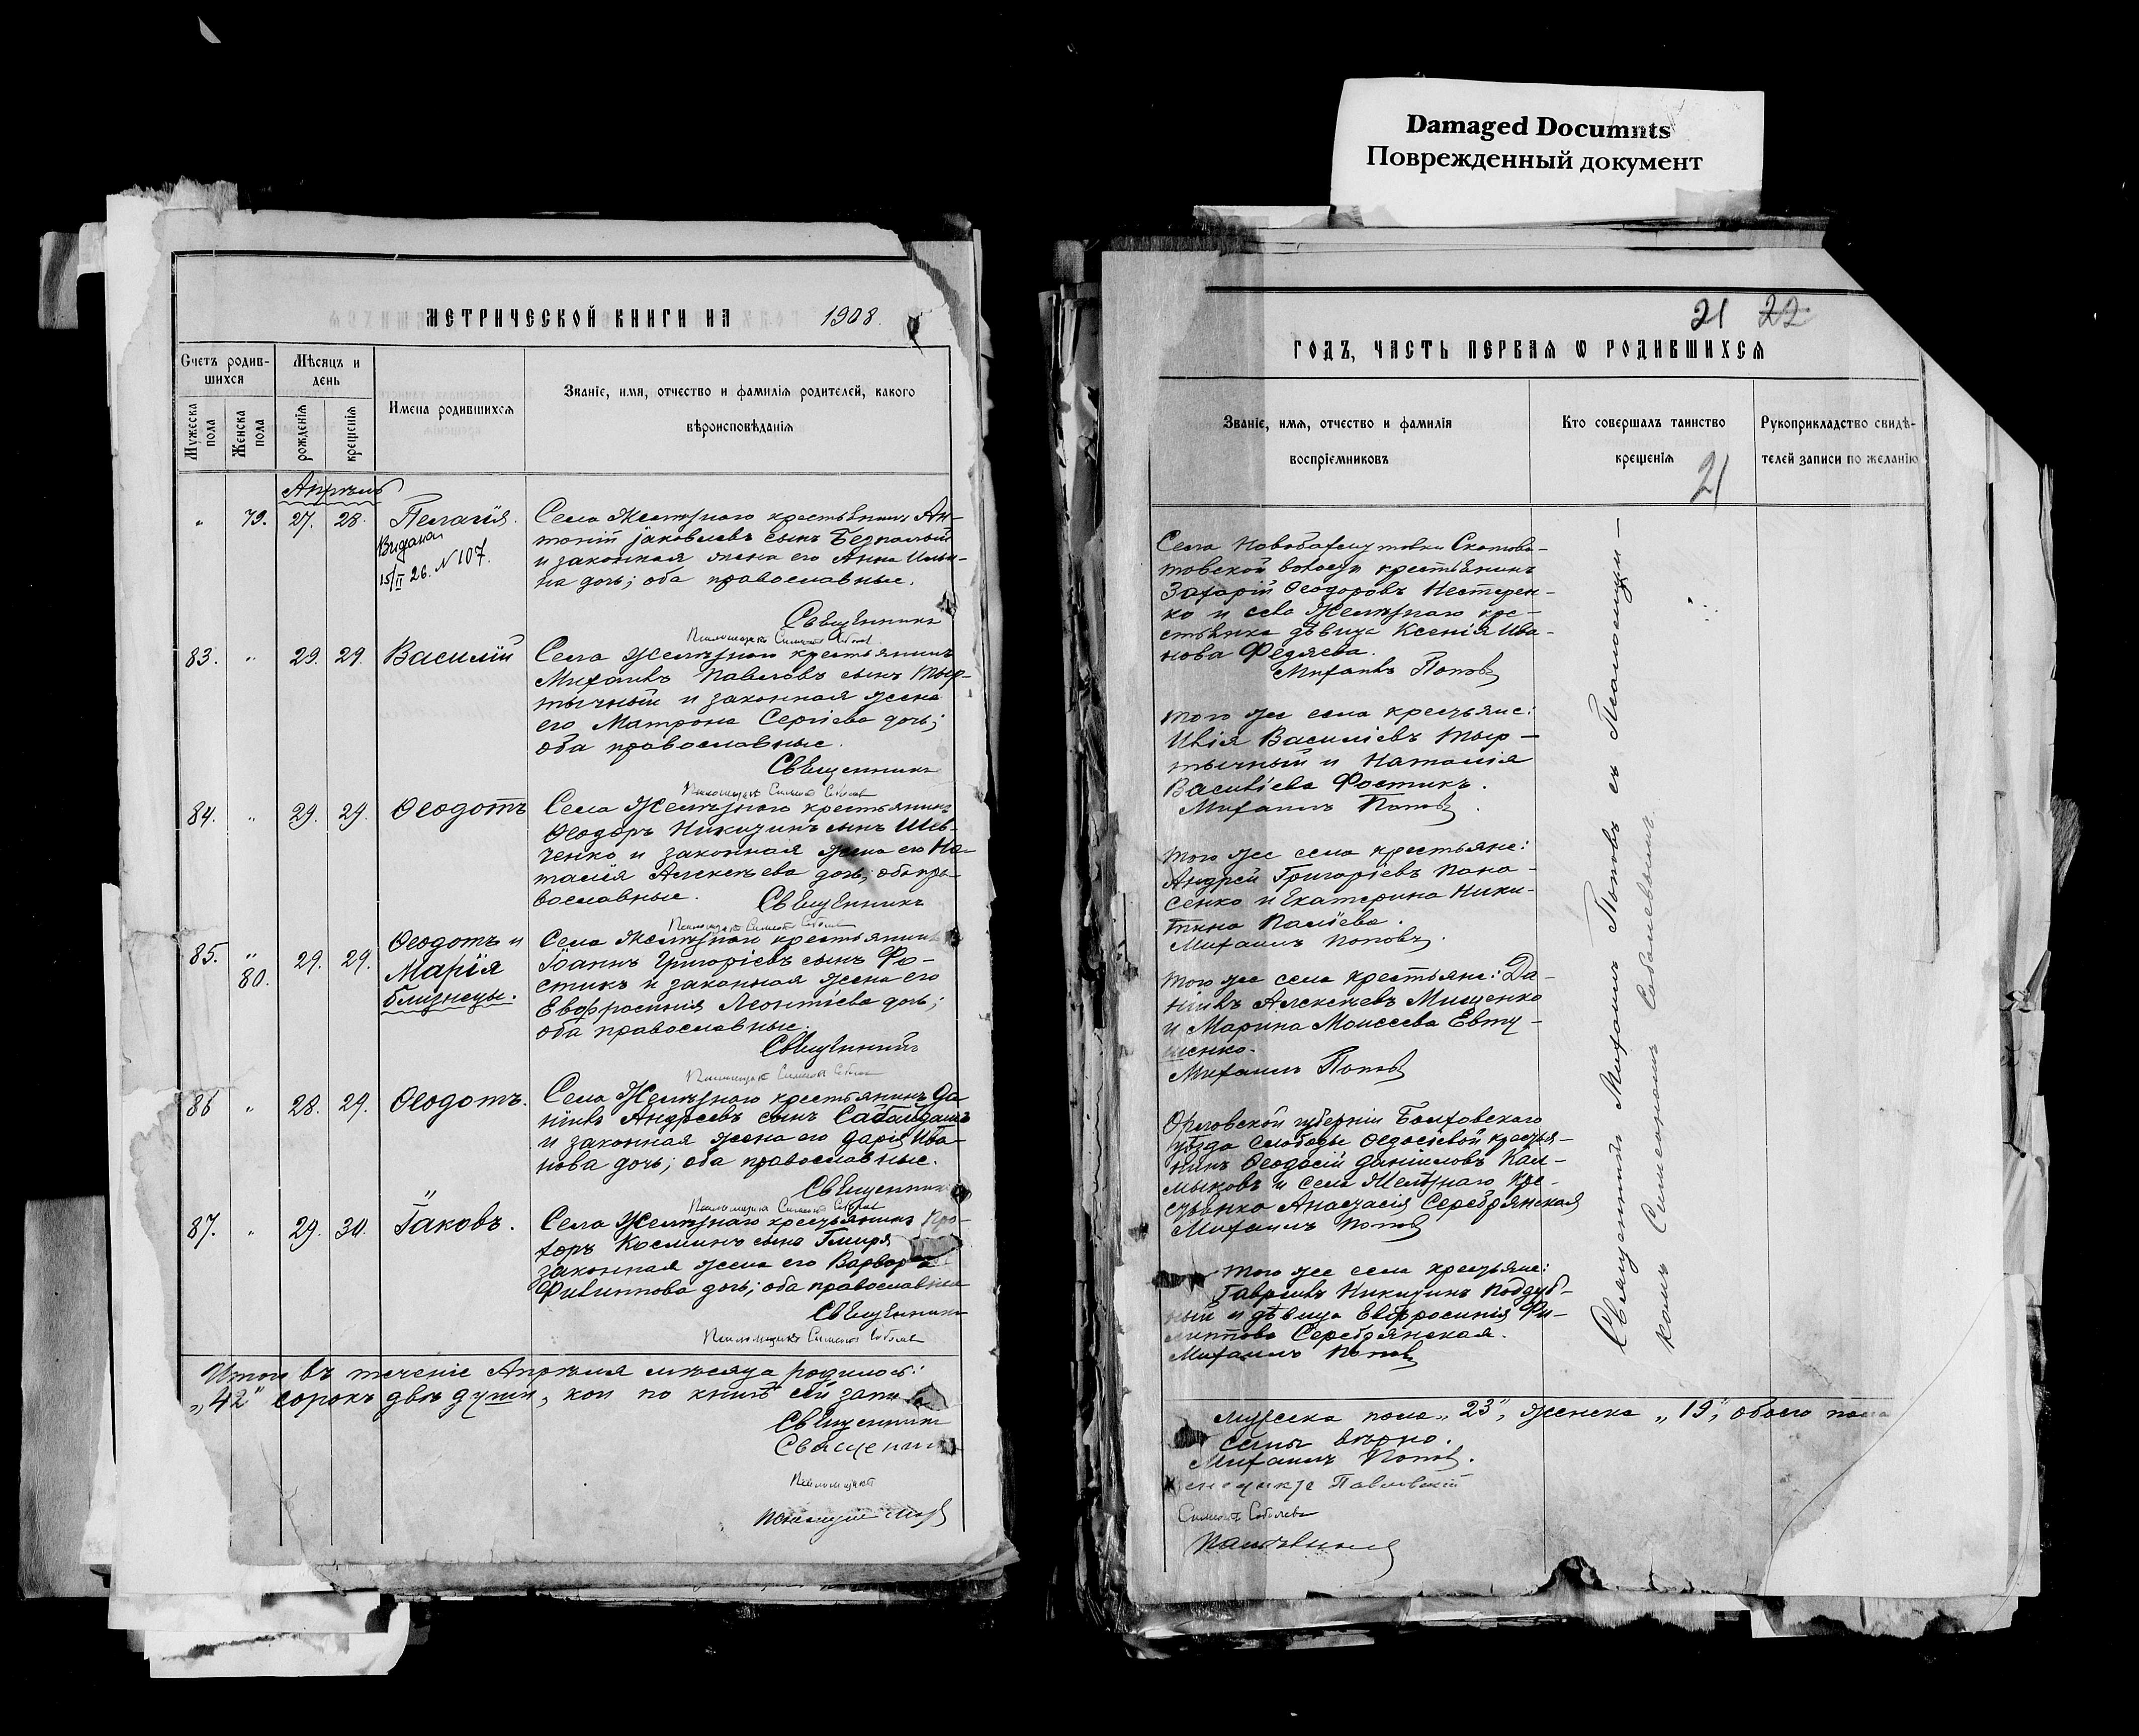 Damaged Documnts
Поврежденный документ
МЕТРИЧЕСКОЙ КНИГИ НА 1908.
Счетъ родив-
шихся
Мѣсяцъ и
день
Мужеска
пола
Женска
пола
рожденія
крещенія
Имена родившихся
Званіе, имя, отчество и фамилія родителей, какого
вѣроисповѣданія
Апрѣль
" 79. 27. 28. Пелагія.
Видана
15/II 26. N 107.
Села Желѣзнаго крестьянинъ Ан-
тоній Іаковлевъ сынъ
и законная жена его Анна Ильи-
на дочь; оба православные.
Священникъ
Псаломщикъ Симеонъ Соболевъ
83. " 29. 29. Василій
Села Желѣзнаго крестьянинъ
Михаилъ Павловъ сынъ Тыр-
тычный и законная жена
его Матрона Сергіева дочь;
оба православные.
Священникъ
Псаломщикъ Симеонъ Соболевъ
84. " 29. 29. Ѳеодотъ
Села Желѣзнаго крестьянинъ
Ѳеодоръ Никитинъ сынъ Шев-
ченко и законная жена его На-
талія Алексѣева дочь; оба пра-
вославные.
Священникъ
Псаломщикъ Симеонъ Соболевъ
85. " 80. 29. 29. Ѳеодотъ и
Марія
близнецы.
Села Желѣзнаго крестьянинъ
Іоаннъ Григоріевъ сынъ Фо-
стикъ и законная жена его
Евфросинія Леонтіева дочь;
оба православные.
Священникъ
Псаломщикъ Симеонъ Соболевъ
86 " 28. 29. Ѳеодотъ.
Села Желѣзнаго крестьянинъ Да-
ніилъ Андреевъ сынъ Сабалдашъ
и законная жена его Дарія Ива-
нова дочь; оба православные.
Священникъ
Псаломщикъ Симеонъ Соболевъ
87. " 29. 30. Іаковъ.
Села Желѣзнаго крестьянинъ Про-
хоръ Косминъ сынъ Гмиря
законная жена его Варвара
Филиппова дочь; оба православные
Священникъ
Псаломщикъ Симеонъ Соболевъ
Итого въ теченіе Апрѣля мѣсяца родилось:
"42" сорокъ двѣ души, кои по книгѣ сей запи
Священникъ
Священникъ
Псаломщикъ
21 22
ГОДЪ, ЧАСТЬ ПЕРВАЯ Ѡ РОДИВШИХСЯ
Званіе, имя, отчество и фамилія
воспріемниковъ
Кто совершалъ таинство
крещенія
21
Рукоприкладство свидѣ-
телей записи по желанію
Села Новобахмутовки Скотова-
товской волости крестьянинъ
Захарій Ѳеодоровъ Нестерен-
ко и села Желѣзнаго кре-
стьянка дѣвица Ксенія Ива-
нова Федяева.
Михаилъ Поповъ
Того же села крестьяне:
Илія Василіевъ Тыр-
тычный и Наталія
Василіева Фостикъ.
Михаилъ Поповъ
Того же села крестьяне:
Андрей Григоріевъ Пана-
сенко и Екатерина Ники-
тина Паліева.
Михаилъ Поповъ.
Того же села крестьяне: Да-
ніилъ Алексѣевъ Мищенко
и Марина Моисеева Евту-
шенко.
Михаилъ Поповъ
Орловской губерніи Болховскаго
уѣзда слободы крестья-
нинъ Ѳеодосій Даніиловъ Кал-
мыковъ и села Желѣзнаго кре-
стьянка Анастасія Серебрянская
Михаилъ Поповъ
Того же села крестьяне:
Гавріилъ Никитинъ Поддуб-
ный и дѣвица Евфросинія Фи-
липпова Серебрянская.
Михаилъ Поповъ
Священникъ Михаилъ Поповъ съ Псаломщи-
комъ Симеономъ Соболевымъ.
мужеска пола "23", женска "19", обоего пола
саны вѣрно.
Михаилъ Поповъ.
Павловскій
Симеонъ Соболевъ